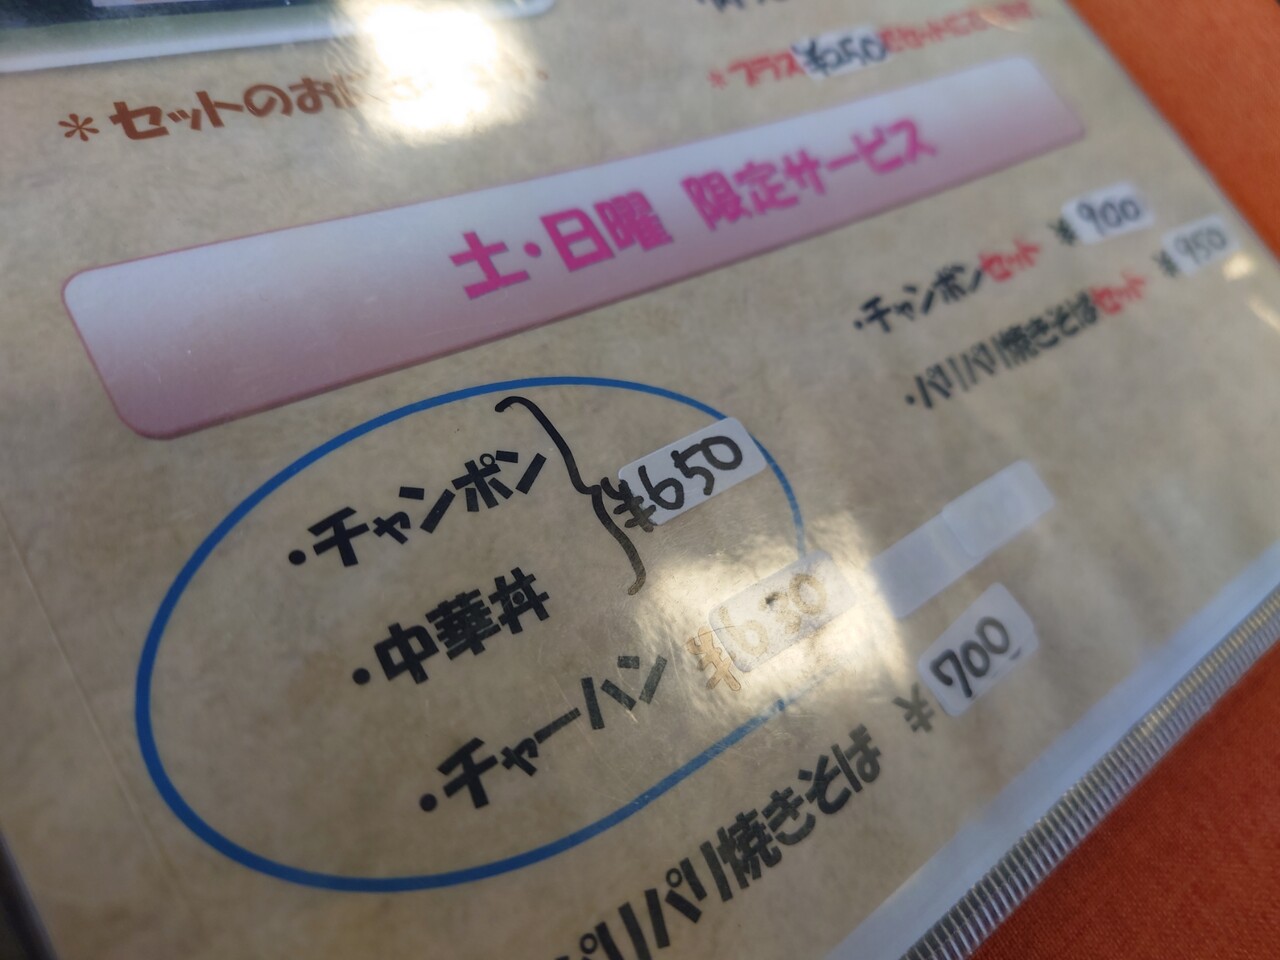 ＊セットのお
＊プラス¥250
土・日曜 限定サービス
・チャンポンセット ¥900
・パリパリ焼きそばセット ¥950
・チャンポン
・中華丼
¥650
・チャーハン ¥630
パリパリ焼きそば ¥700